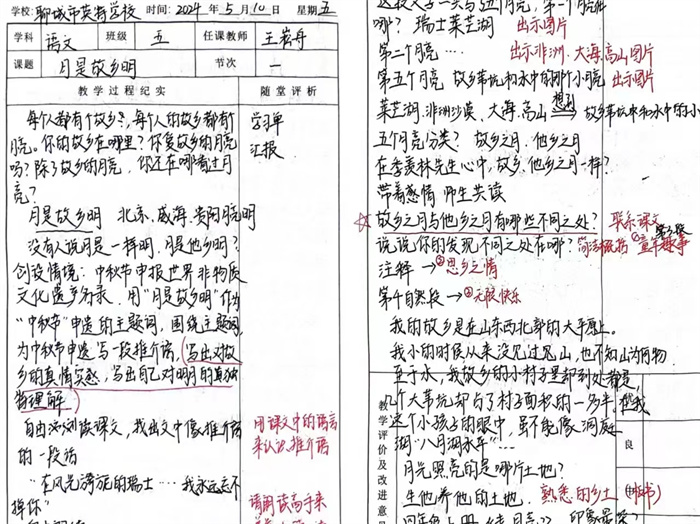 学校: 聊城市英特学校 时间: 2024 年 5 月 10 日 星期五
学科 语文 班级 五 任课教师 王若丹
课题 月是故乡明 节次 一
教学过程纪实 随堂评析
每个人都有个故乡,每个人的故乡都有
月亮。你的故乡在哪里?你爱故乡的月亮
吗?除了故乡的月亮,你还在哪看过月
亮?
学习单
汇报
月是故乡明 北京、威海、贵阳月明
没有人说月是一样明,月是他乡明?
创设情境:中秋节申报世界非物质
文化遗产名录,用“月是故乡明”作为
“中秋节”申遗的主题词,围绕主题词,
为中秋节申遗写一段推介语,写出对故
乡的真情实感,写出自己对明月的真独
特理解
自由浏览读课文,找出文中像推介语
的一段话
用课文中的语言
来认识推介语
“在风光旖旎的瑞士……我永远忘不
掉你”
请朗读高手来
哪?瑞士莱芒湖 出示图片
第二个月亮… 出示非洲、大海、高山图片
第五个月亮 故乡苇坑和水中的那个小月亮 出示图片
莱芒湖、非洲沙漠、大海、高山 想到 故乡苇坑中和水中的小
五个月亮分类? 故乡之月、他乡之月
在季羡林先生心中,故乡、他乡之月一样?
带着感情 师生共读
☆故乡之月与他乡之月有哪些不同之处? 联系课文
说说你的发现不同之处在哪? 简洁概括 童年趣事
注释 → ①思乡之情
第4自然段 → ②无限快乐
我的故乡是在山东西北部的大平原上。
我小的时候从来没见过山,也不知山为何物
至于水,我故乡的小村子里却到处都是,
几个大苇坑却占了村子面积的一多半。在我
这个小孩子的眼中,虽不能像洞庭
湖“八月湖水平”…
月光照亮的是哪片土地?
生他养他的土地。 熟悉的乡土
教学评价及改进意见
良